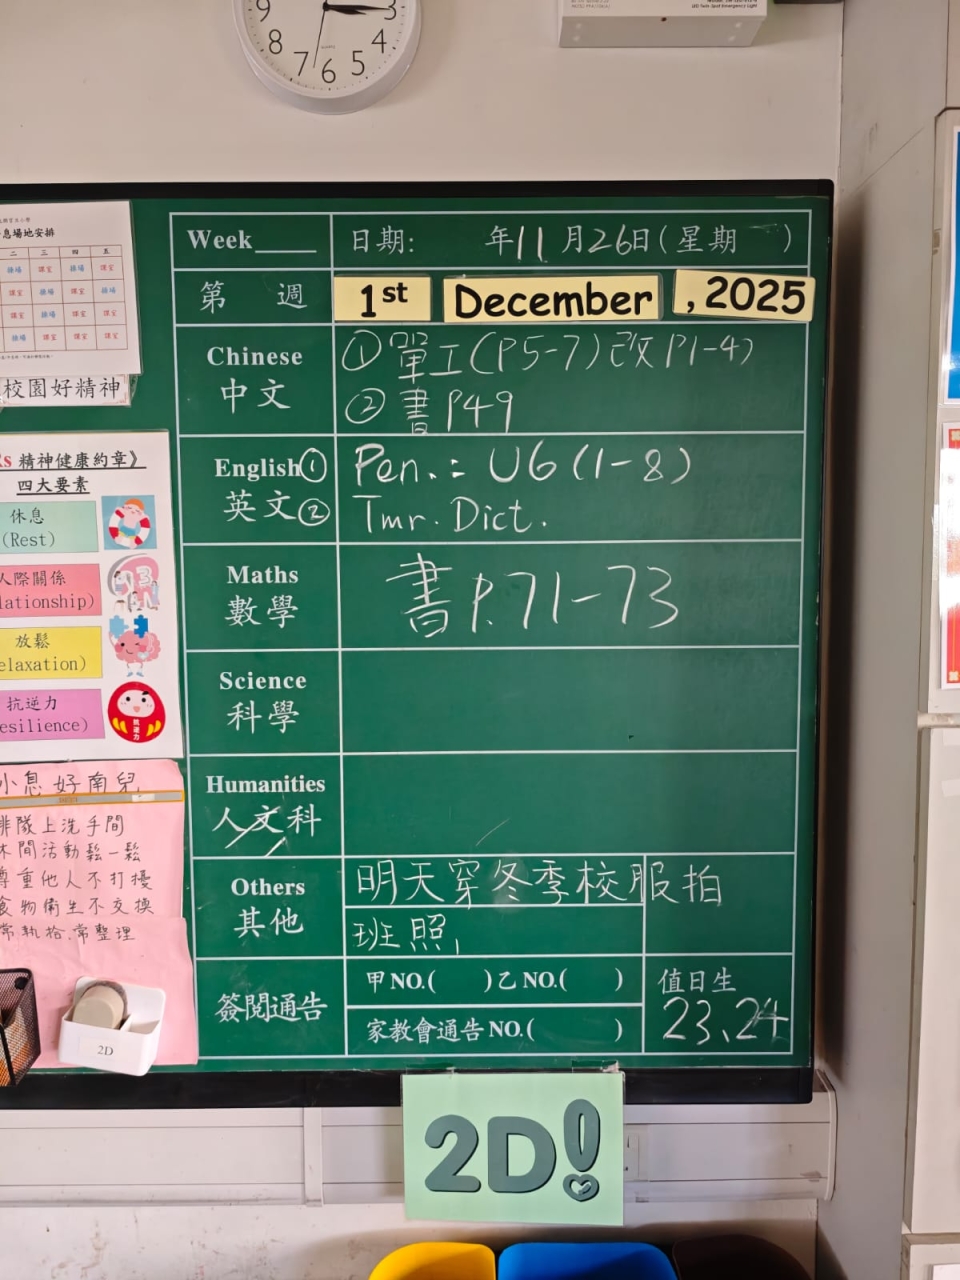 9
3
8
4
7
6
5
息場地安排
二 三 四 五
操場 課室 操場 課室
課室 操場 課室 操場
課室 課室 課室 課室
操場 課室 課室 課室
校園好精神
Rs 精神健康約章》
四大要素
休息
(Rest)
人際關係
lationship)
放鬆
elaxation)
抗逆力
esilience)
抗逆力
小息好南兒
排隊上洗手間
休閒活動鬆一鬆
尊重他人不打擾
食物衛生不交換
常執拾.常整理
2D
Week____ 日期: 年11月26日(星期一)
第 週 1st December , 2025
Chinese 中文
①單工(P5-7)改P1-4)
②書P49
English① 英文②
Pen.: U6 (1-8)
Tmr. Dict.
Maths 數學
書P.71-73
Science 科學
Humanities 人文科
Others 其他
明天穿冬季校服拍
班照,
簽閱通告
甲NO.( )乙NO.( )
家教會通告NO.( )
值日生
23、24
2D!